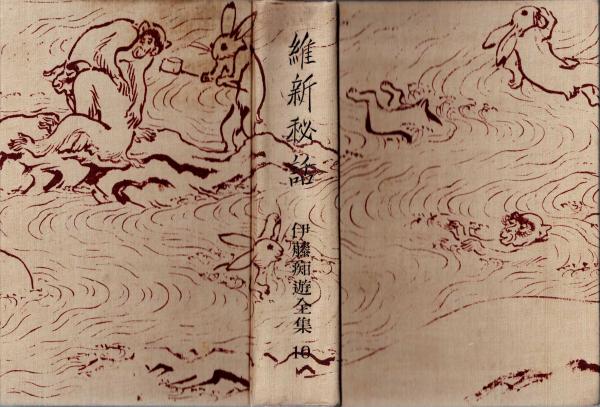 維新秘話
伊藤痴遊全集
10